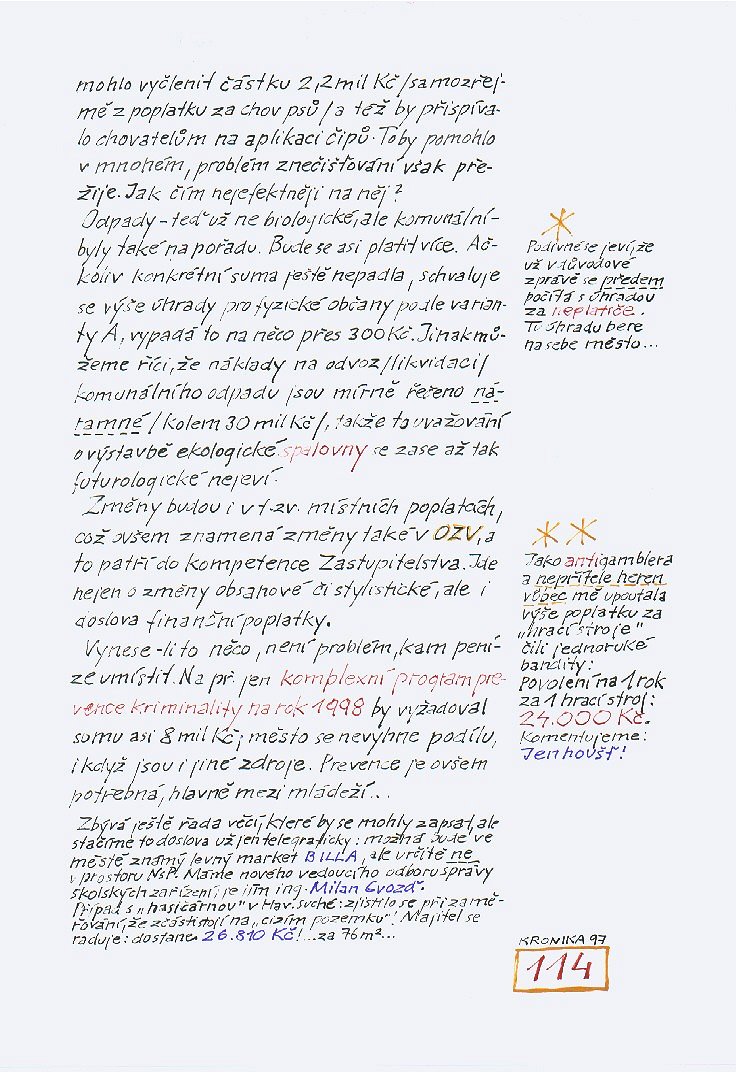 mohlo vyčlenit částku 2,2 mil Kč /samozřej-
mě z poplatku za chov psů/ a též by přispíva-
lo chovatelům na aplikaci čipů. To by pomohlo
v mnohém, problém znečišťování však pře-
žije. Jak čím nejefektněji na něj?
Odpady - teď už ne biologické, ale komunální -
byly také na pořadu. Bude se asi platit více. Ač-
koliv konkrétní suma ještě nepadla, schvaluje
se výše úhrady pro fyzické občany podle varian-
ty A, vypadá to na něco přes 300 Kč. Jinak mů-
žeme říci, že náklady na odvoz /likvidaci/
komunálního odpadu jsou mírně řečeno ná-
ramné /kolem 30 mil Kč/, takže to uvažování
o výstavbě ekologické spalovny se zase až tak
futurologické nejeví.
Změny budou i v t.zv. místních poplatcích,
což ovšem znamená změny také v OZV, a
to patří do kompetence Zastupitelstva. Jde
nejen o změny obsahové či stylistické, ale i
doslova finanční poplatky.
Vynese-li to něco, není problém, kam pení-
ze umístit. Na př. jen komplexní program pre-
vence kriminality na rok 1998 by vyžadoval
sumu asi 8 mil Kč; město se nevyhne podílu,
i když jsou i jiné zdroje. Prevence je ovšem
potřebná, hlavně mezi mládeží...
Zbývá ještě řada věcí, které by se mohly zapsat, ale
stačíme to doslova už jen telegraficky: možná bude ve
městě známý levný market BILLA, ale určitě ne
v prostoru NsP. Máme nového vedoucího odboru správy
školských zařízení, je jím ing. Milan Gvozď.
Případ s „hasičárnou" v Hav. Suché: zjistilo se při zamě-
řování, že zčásti stojí na „cizím pozemku"! Majitel se
raduje: dostane 26.810 Kč! ...za 76 m²...
*
Podivné se jeví, že
už v důvodové
zprávě se předem
počítá s úhradou
za neplatiče.
Tu úhradu bere
na sebe město...
**
Jako antigamblera
a nepřítele heren
vůbec mě upoutala
výše poplatku za
„hrací stroje"
čili jednoruké
bandity:
Povolení na 1 rok
za 1 hrací stroj:
24.000 Kč.
Komentujeme:
Jen houšť!
KRONIKA 97
114